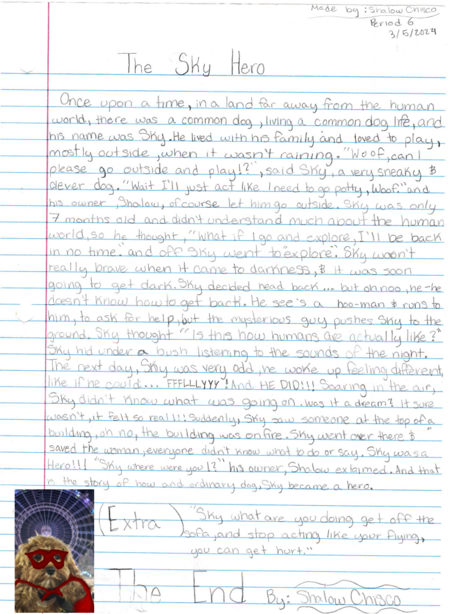 Made by: Shalow Chisco
Period 6
3/5/2024
The Sky Hero
Once upon a time, in a land far away from the human
world, there was a common dog, living a common dog life, and
his name was Sky. He lived with his family and loved to play,
mostly outside, when it wasn't raining. "Woof, can I
please go outside and play!?", said Sky, a very sneaky &
clever dog. "Wait I'll just act like I need to go potty, Woof." and
his owner, Shalow, ofcourse let him go outside. Sky was only
7 months old and didn't understand much about the human
world, so he thought, "What if I go and explore, I'll be back
in no time." and off Sky went to explore. Sky wasn't
really brave when it came to darkness, & it was soon
going to get dark. Sky decided head back... but oh noo, he-he
doesn't know how to get back. He see's a hoo-man & runs to
him, to ask for help, but the mysterious guy pushes Sky to the
ground. Sky thought "Is this how humans are actually like?"
Sky hid under a bush listening to the sounds of the night.
The next day, Sky was very odd, he woke up feeling different,
like if he could... "FFFLLLYYY"! And HE DID!!! Soaring in the air,
Sky didn't know what was going on. Was it a dream? It sure
wasn't, it felt so real!!! Suddenly, Sky saw someone at the top of a
building, oh no, the building was on fire. Sky went over there &
saved the woman, everyone didn't know what to do or say. Sky was a
Hero!!! "Sky where were you!?" his owner, Shalow exclaimed. And that
is the story of how and ordinary dog, Sky became a hero.
(Extra)
"Sky what are you doing get off the
sofa, and stop acting like your flying,
you can get hurt."
The End By: Shalow Chisco